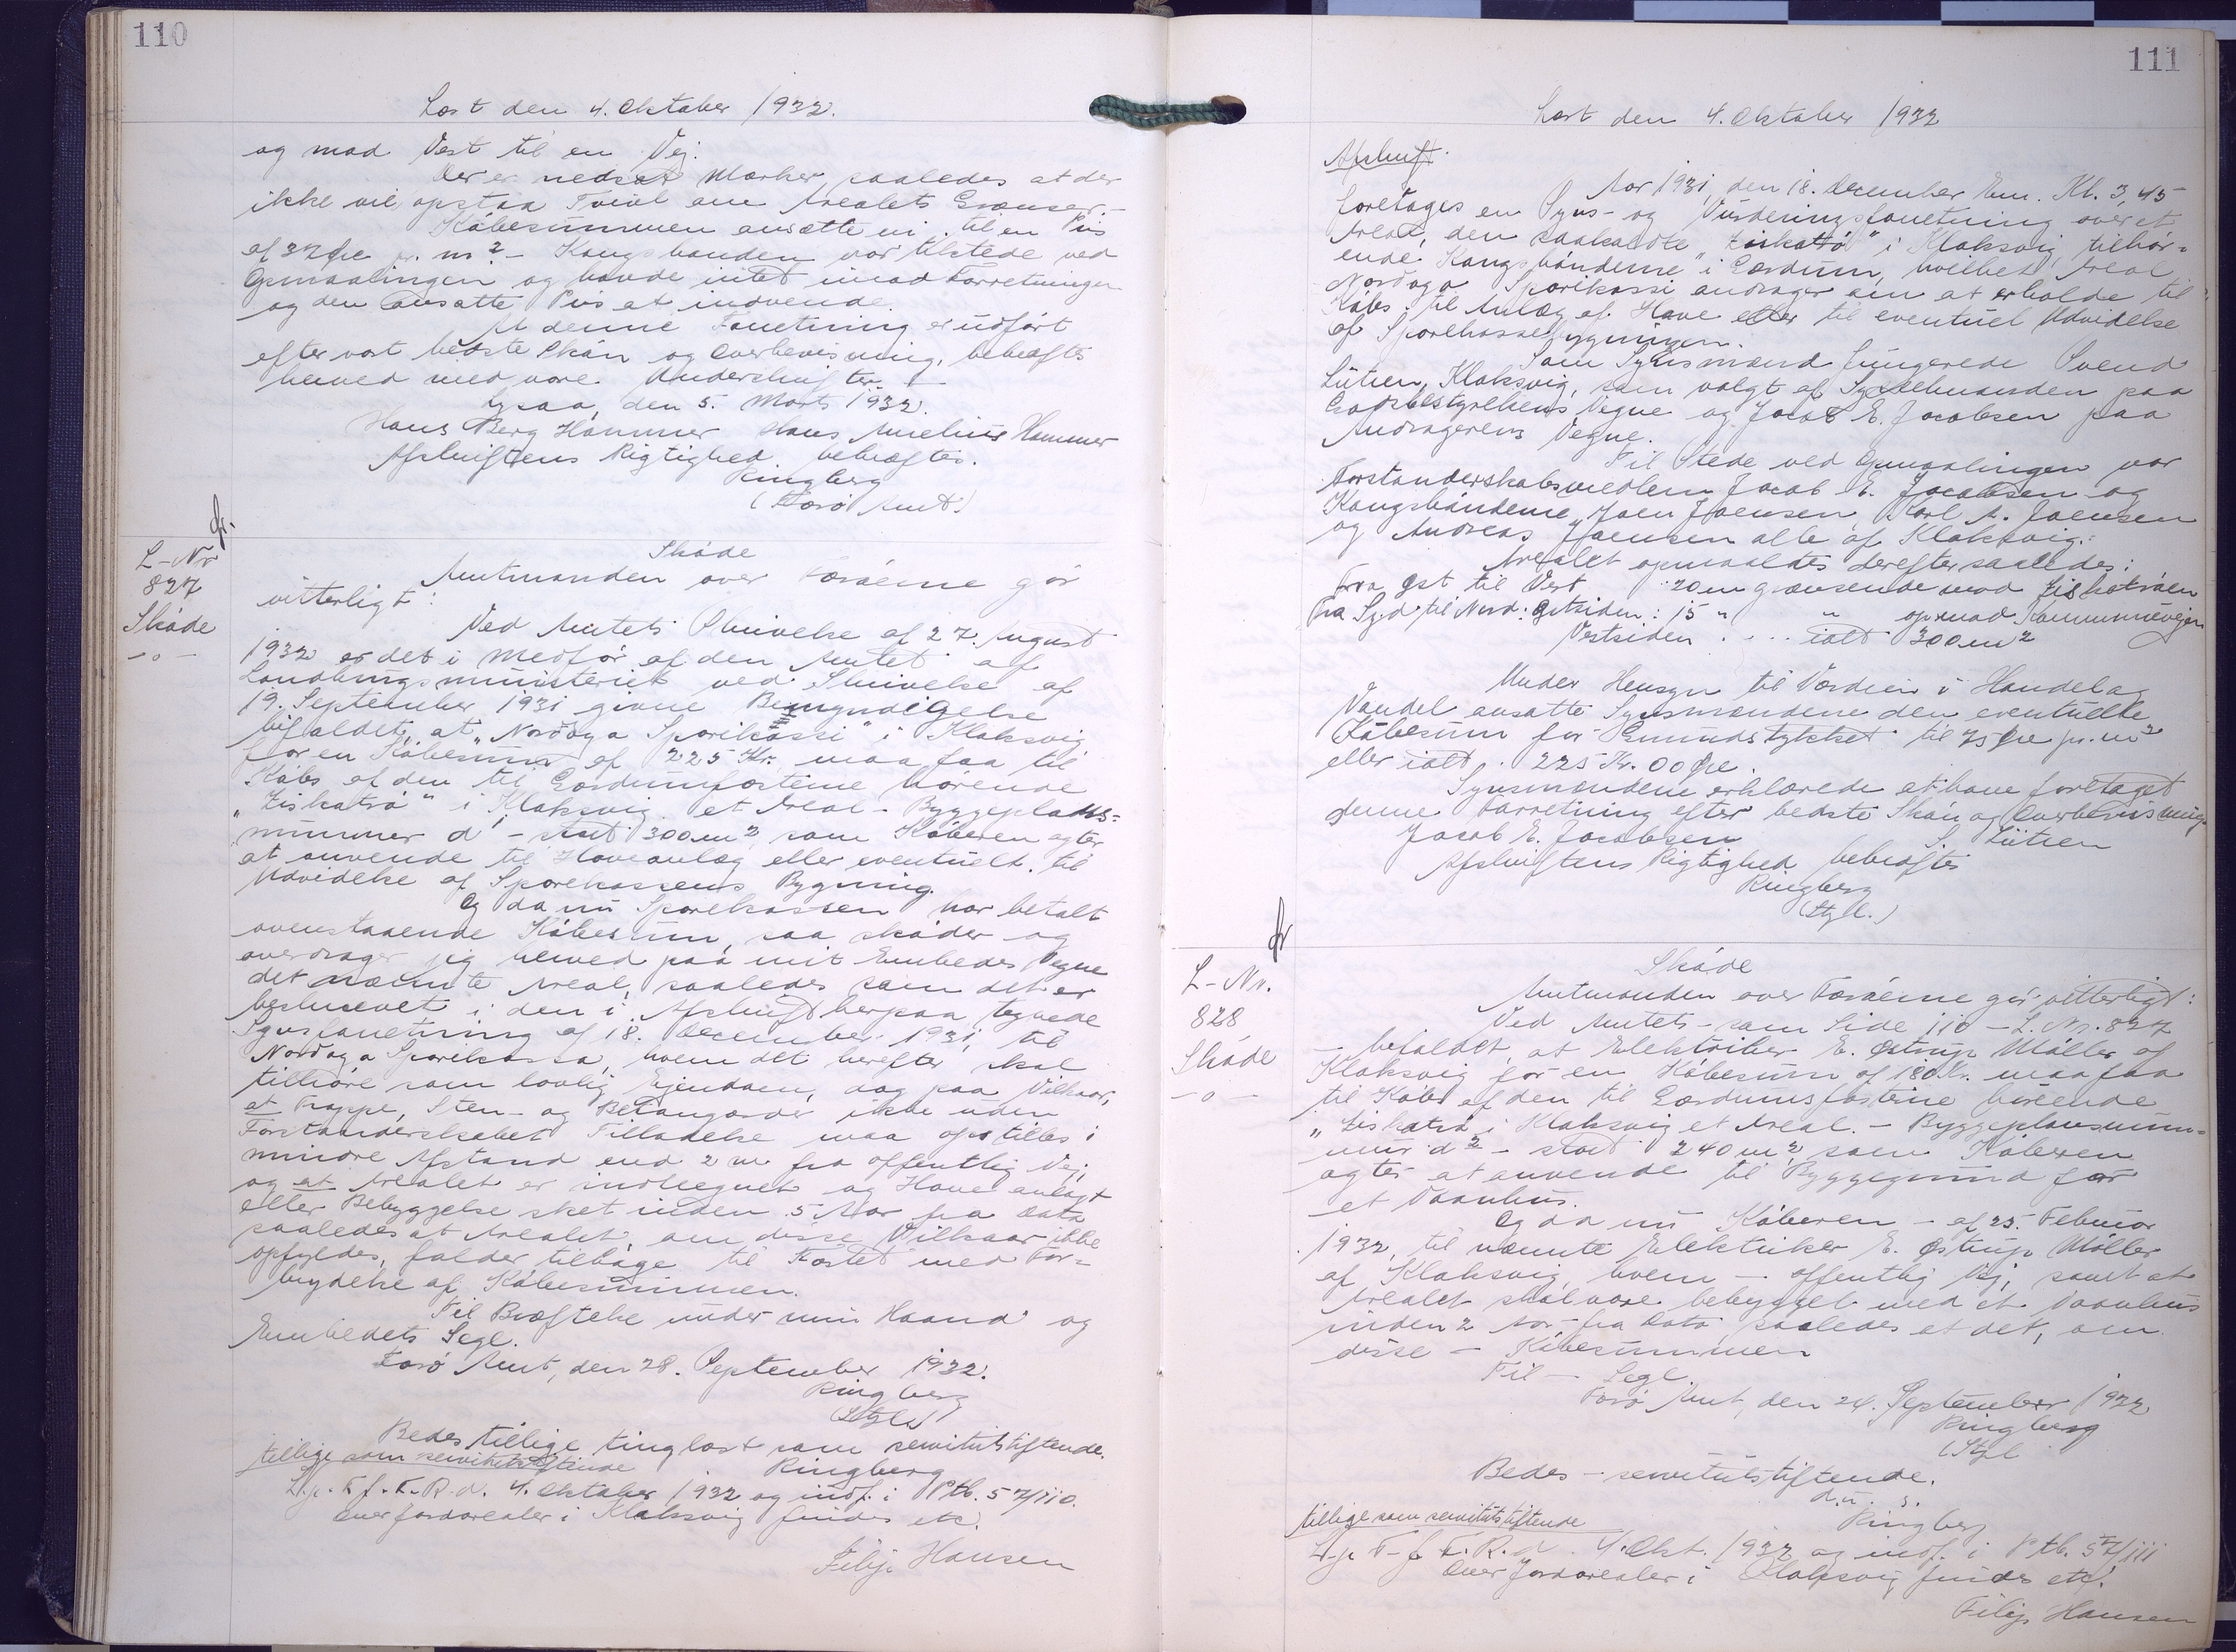 110
Læst den 4. Oktober 1932.
og mod Vest til en Vej.
Der er nedsat Mærker, saaledes at der
ikke vil opstaa Tvivl om Arealets Grænser.-
Købesummen ansætte vi til en Pris
af 32 Øre pr. m² - Kongsbonden var tilstede ved
Opmaalingen og havde intet imod Forretningen
og den ansatte Pris at indvende.
At denne Forretning er udført
efter vort bedste Skøn og Overbevisning, bekræftes
herved med vore Underskrifter.
den 5. Marts 1932.
Hans Berg Hammer Hans Hammer
Afskriftens Rigtighed bekræftes.
Ringberg
(Færø Amt.)
fr.
L-Nr
827
Skøde
-o-
Skøde
Amtmanden over Færøerne gør
vitterligt:
Ved Amtets Skrivelse af 27. August
1932 er det i Medfør af den Amtet af
Landbrugsministeriet ved Skrivelse af
19. September 1931 givne Bemyndigelse
bifaldet, at "Norðoya Sparikassi" i Klaksvig
for en Købesum af 225 Kr. maa faa til
Købs af den til Gærdumfæsterne hørende
"Ziskatrø" i Klaksvig et Areal - Byggeplads=
nummer d¹ - stort 300 m², som Køberen agter
at anvende til Haveanlæg eller eventuelt til
Udvidelse af Sparekassens Bygning.
Og da nu Sparekassen har betalt
ovenstaaende Købesum, saa skøder og
overdrager jeg herved paa mit Embedes Vegne
det nævnte Areal, saaledes som det er
beskrevet i den i Afskrift herpaa tegnede
Synsforretning af 18. December 1931, til
Norðoya Sparikassa, hvem det herefter skal
tilhøre som lovlig Ejendom, dog paa Vilkaar,
at Trappe, Sten- og Betongærder ikke uden
Forstanderskabets Tilladelse maa opstilles i
mindre Afstand end 2 m fra offentlig Vej,
og at Arealet er indhegnet og Have anlagt
eller Bebyggelse sket inden 5 Aar fra Dato
saaledes at Arealet, om disse Vilkaar ikke
opfyldes, falder tilbage til Fæstet med For=
brydelse af Købesummen.
Til Bekræftelse under min Haand og
Embedets Segl.
Færø Amt, den 28. September 1932.
Ringberg
(Segl)
Bedes tillige tinglæst som servitutstiftende.
tillige som servitutstiftende Ringberg
L.p. F. f. F. R. d. 4. Oktober 1932 og indf. i Ptb. 57/110.
Over Jordarealer i Klaksvig findes etc.
Filip Hansen
111
Læst den 4. Oktober 1932
Afskrift.
Aar 1931, den 18. December Em. Kl. 3,45
foretages en Syns- og Vurderingsforretning over et
Areal, den saakaldte "Ziskatrø" i Klaksvig, tilhør=
ende "Kongsbønderne" i Gærdum, hvilket Areal
Norðoya Sparikassi andrager om at erholde til
Købs til Anlæg af Have eller til eventuel Udvidelse
af Sparekassebygningen.
Som Synsmænd fungerede Svend
Lützen, Klaksvig, som valgt af Sysselmanden paa
Jordbestyrelsens Vegne og Jacob E. Jacobsen paa
Andragerens Vegne.
Til Stede ved Opmaalingen var
Forstanderskabsmedlem Jacob E. Jacobsen og
Kongsbønderne Joen Joensen, Karl A. Joensen
og Andreas Joensen alle af Klaksvig.
Arealet opmaaltes derefter saaledes:
Fra Øst til Vest 20 m grænsende mod Ziskatrøen
Fra Syd til Nord: Østsiden: 15 " " op mod Kommunevejen
Vestsiden . . . . ialt 300 m²
Under Hensyn til Værdien i Handel og
Vandel ansatte Synsmændene den eventuelle
Købesum for Grundstykket til 75 Øre pr. m²
eller ialt 225 Kr. 00 Øre.
Synsmændene erklærede at have foretaget
denne Forretning efter bedste Skøn og Overbevisning.
Jacob E. Jacobsen S. Lützen
Afskriftens Rigtighed bekræftes
Ringberg
(Segl.)
fr
L-Nr.
828
Skøde
-o-
Skøde
Amtmanden over Færøerne gør vitterligt:
Ved Amtets - som Side 110 - L. Nr. 827
- bifaldet, at Elektriker E. Østrup Møller af
Klaksvig for en Købesum af 180 Kr. maa faa
til Købs af den til Gærdumsfæsterne hørende
"Ziskatrø" i Klaksvig et Areal. - Byggeplansnum=
mer d² - stort 240 m², som Køberen
agter at anvende til Byggegrund for
et Vaanhus.
Og da nu Køberen - af 25. Februar
1932, til nævnte Elektriker E. Østrup Møller
af Klaksvig, hvem - offentlig Vej, samt at
Arealet skal være bebygget med et Vaanhus
inden 2 Aar fra Dato saaledes at det, om
disse - Købesummen
Til - Segl.
Færø Amt, den 24. September 1932
Ringberg
(Segl
Bedes - servitutstiftende.
d.u. s.
Ringberg
tillige som servitutstiftende
L.p. F. f. F. R. d. 4. Okt. 1932 og indf. i Ptb. 57/111
Over Jordarealer i Klaksvig findes etc.
Filip Hansen